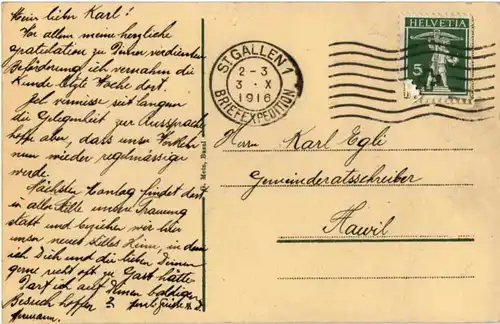 Mein lieber Karl!
Vor allem meine herzliche
Gratulation zu Deiner verdienten
Beförderung, ich vernahm die
Kunde letzte Woche dort.
Ich vermisse seit langem
die Gelegenheit zur Aussprache
hoffe aber, dass unser Verkehr
nun wieder regelmässiger
werde.
Nächsten Montag findet dort
in aller Stille unsere Trauung
statt und beziehen wir hier
unser neues stilles Heim, in dem
ich Dich und die lieben Deinen
gerne recht oft zu Gast hätte.
Darf ich auf Deinen baldigen
Besuch hoffen?
Hermann.
ST. GALLEN 1
2-3
3 · X
1916
BRIEFEXPEDITION
HELVETIA
5
Metz, Basel
Herrn Karl Egli
Gemeinderatsschreiber
Flawil